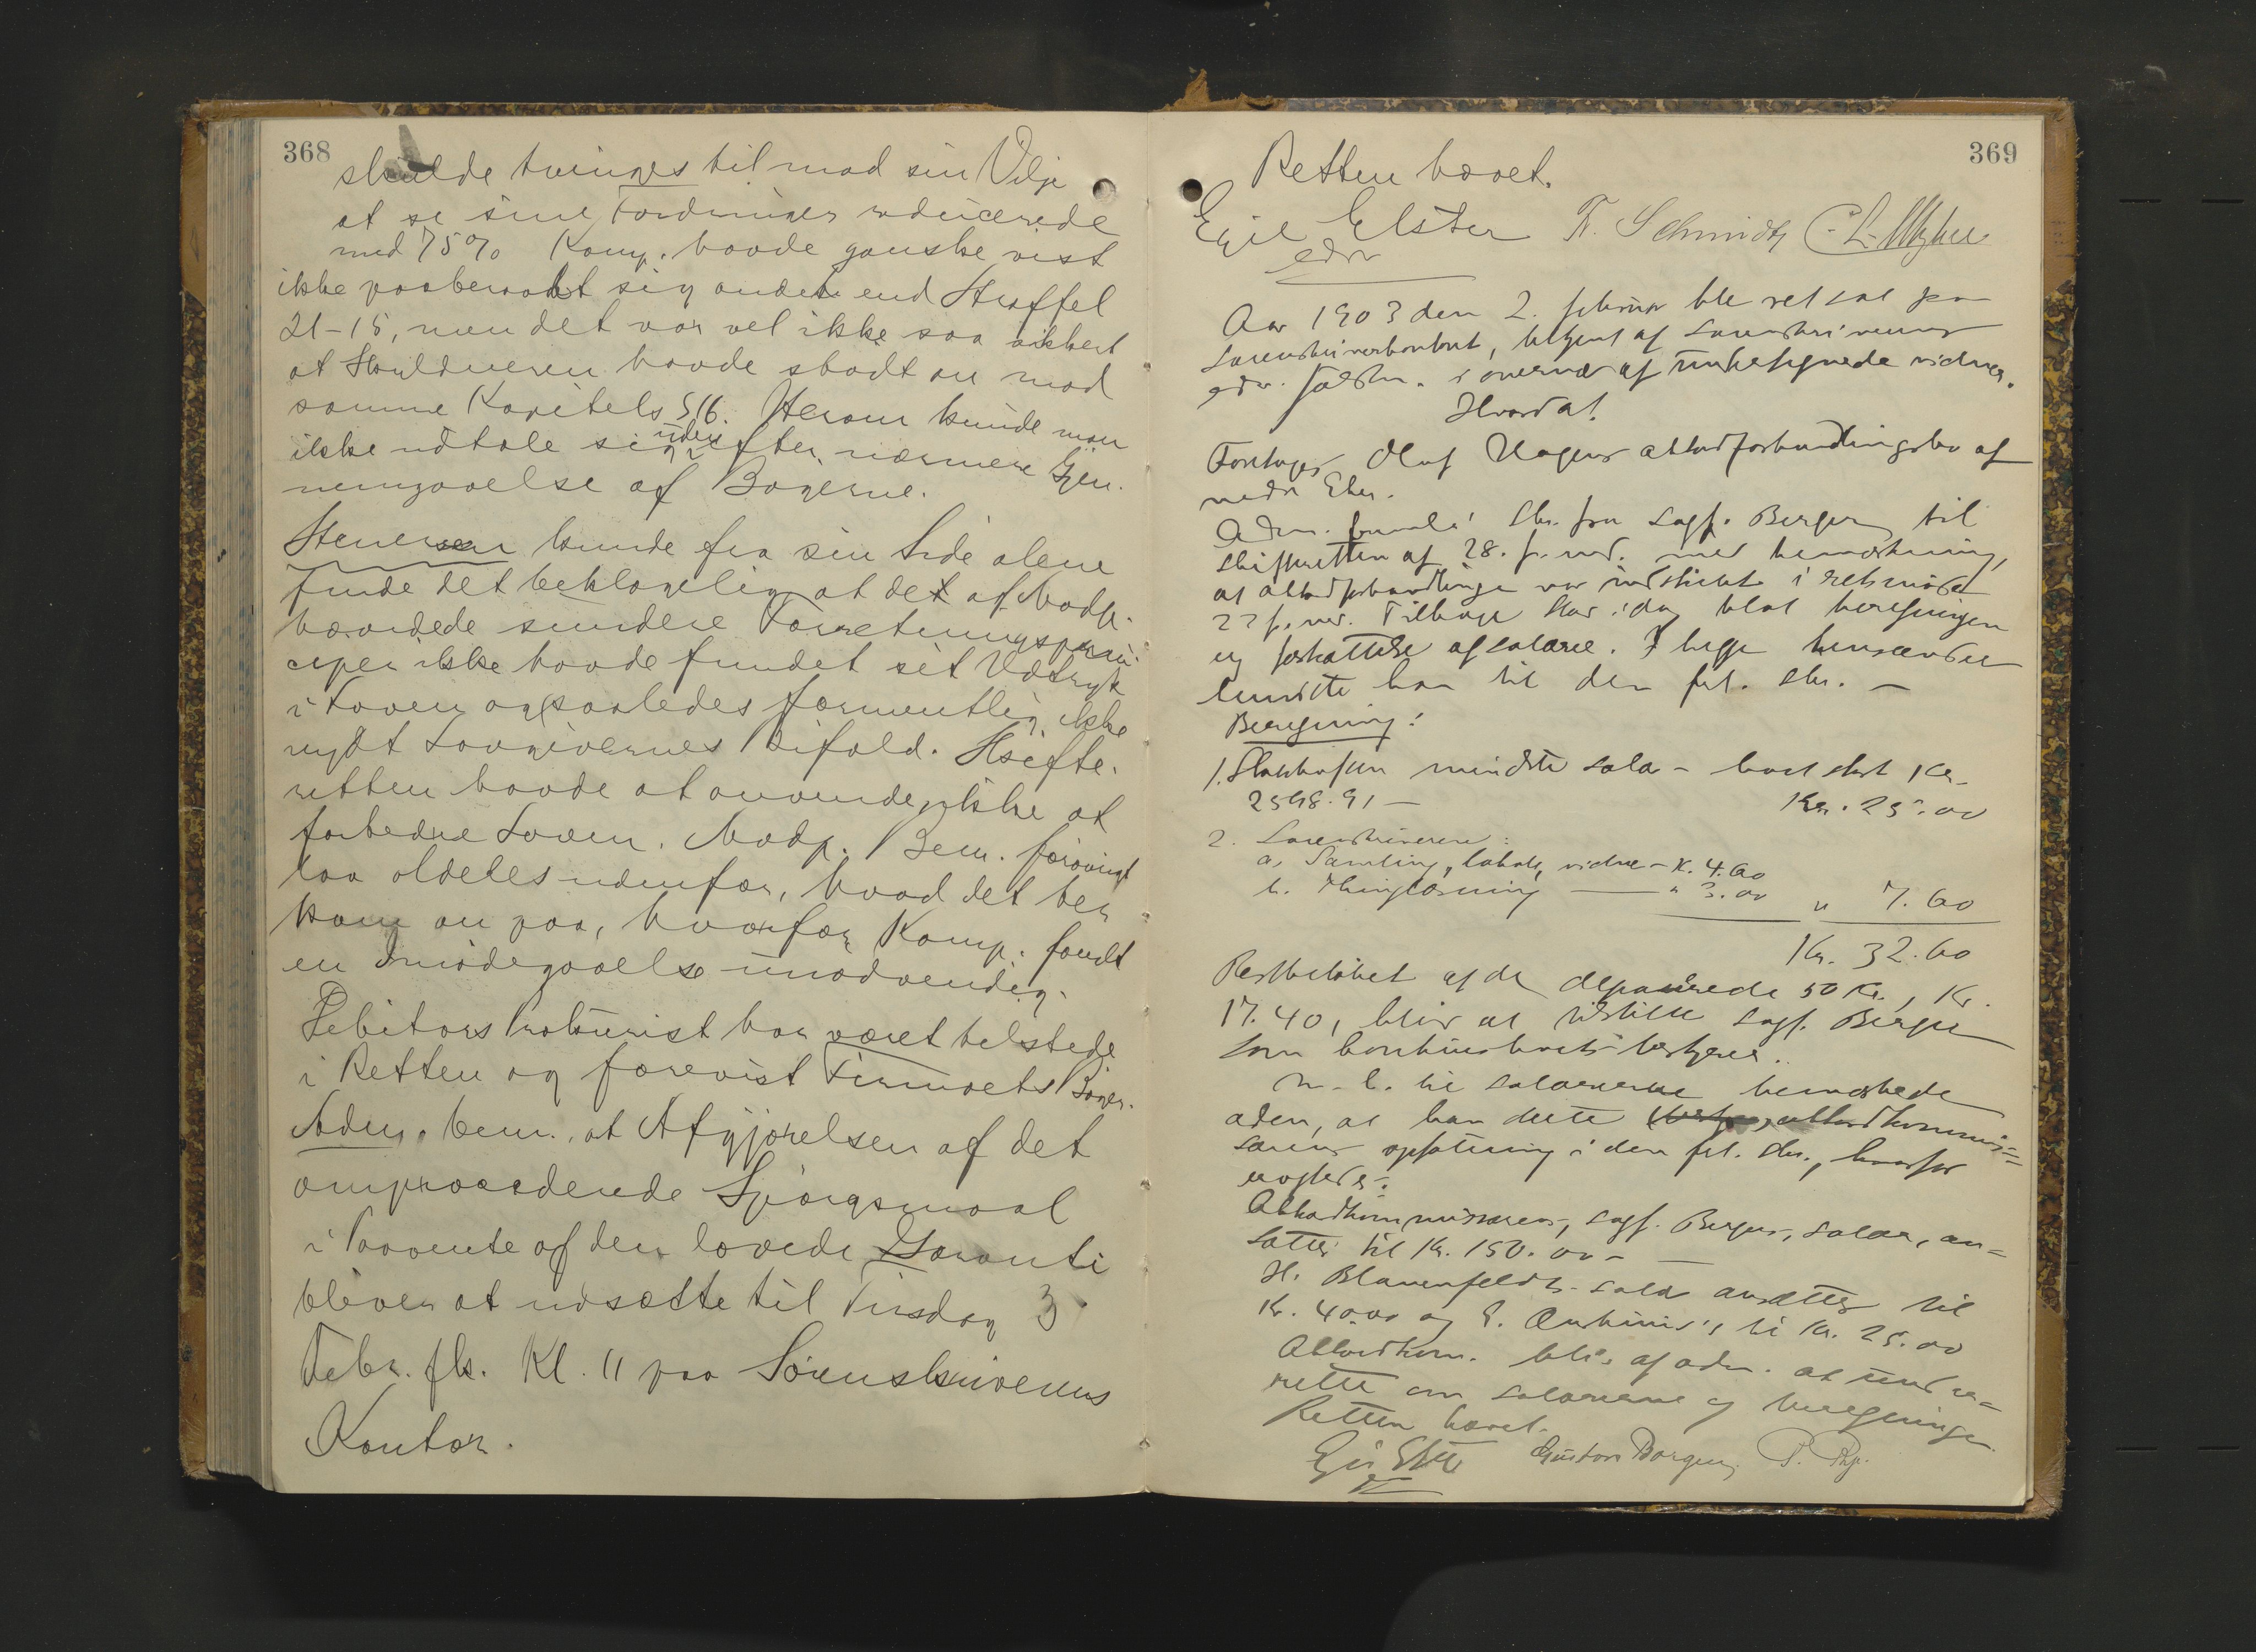 368
skulde tvinges til mod sin Vilje
at se sine Fordringer reducerede
med 75% Komp. havde ganske vist
ikke paaberaabt sig andet end Straffel
21-15, men det var vel ikke saa sikkert
at Skuldneren havde stødt an mod
samme Kapitels § 16. Herom kunde man
ikke udtale sig uden efter nærmere Gjen-
nemgaaelse af Bøgerne.
Stenersen kunde fra sin Side alene
finde det beklagelig at det af Modp.
hævdede sundere Forretningsprin-
ciper ikke havde fundet sit Udtryk
i Loven og saaledes formentlig ikke
nydt Lovgivernes Bifald. Skifte-
retten havde at anvende, ikke at
forbedre Loven. Modp. Bem. forøvrigt
laa aldeles udenfor, hvad det her
kom an paa, hvorfor Komp. fandt
en Imødegaaelse unødvendig.
Debitors Prokurist har været tilstede
i Retten og forevist Firmaets Bøger.
Adm. bem. at Afgjørelsen af det
omprocederede Spørgsmaal
i Paavente af den lovede Garanti
bliver at udsætte til Tirsdag 3
Febr. fk. Kl. 11 paa Sorenskriverens
Kontor.
369
Retten hævet.
Egil Elster F. Schmidt
edsv
Aar 1903 den 2. februar ble ret sat paa
sorenskriverkontoret, betjent af sorenskriverens
edsv. fuldm. i overvær af undertegnede vidner.
Hvorda!
Foretoges Olaf Hagens akkordforhandlingsbo af
nedr Eker.
Adm. fremla' skr. fra sagf. Berger til
skifteretten af 28. f. md. med bemærkning,
at akkordforhandlinge var indstillet i retsmøde
22 f. md. Tilbage staar idag blot beregningen
og fastsættelse af salærer. I begge henseender
henviste han til den frl. skr. —
Beregning:
1. Statskassen mindste salær - Kr.
2548.91 — Kr. 25.00
2. Sorenskriveren:
a, Samling, lokale, vidne - K. 4.60
b. Thinglæsning — " 3.00 " 7.60
Kr. 32.60
Restbeløbet af de deponerede 50 Kr., Kr.
17.40, blir at tilstille sagf. Berger
som
M. h. til salærerne bemærkede
adm, at han akkordkommis=
særens opfatning i den frl. skr., hvorfor
Akkordkommissærens, sagf. Bergers, salær, an=
sættes til Kr. 150.00 —
H. Blauenfeldts salær ansættes til
Kr. 40.00 og til Kr. 25.00
Akkordkom. blir af adm. at under=
rette om salærerne og beregningen.
Retten hævet.
Egil Elster Gustav Borgen